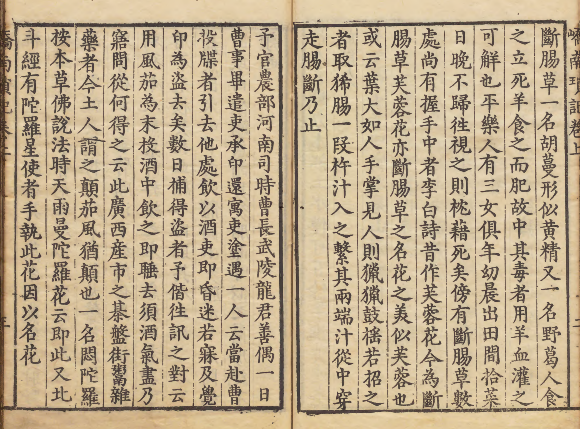 嶠南瑣記卷上
斷腸草一名胡蔓形似黃精又一名野葛人食
之立死羊食之而肥故中其毒者用羊血灌之
可解也平樂人有三女俱年幼晨出田間拾菜
日晚不歸徃視之則枕藉死矣傍有斷腸草數
處尚有握手中者李白詩昔作芙蓉花今為斷
腸草芙蓉花亦斷腸草之名花之美似芙蓉也
或云葉大如人手掌見人則獵獵鼓搖若招之
者取狶腸一段杵汁入之繫其兩端汁從中穿
走腸斷乃止
予官農部河南司時曹長武陵龍君善偶一日
曹事畢遣吏承印還寓吏塗遇一人云當赴曹
投牒者引去他處飲以酒吏即昏迷若寐及覺
印為盜去矣數日捕得盜者予偕徃訊之對云
用風茄為末投酒中飲之即睡去須酒氣盡乃
寤問從何得之云此廣西産市之棊盤街鬻雜
藥者今土人謂之顛茄風猶顛也一名悶陀羅
按本草佛說法時天雨曼陀羅花云即此又北
斗經有陀羅星使者手執此花因以名花